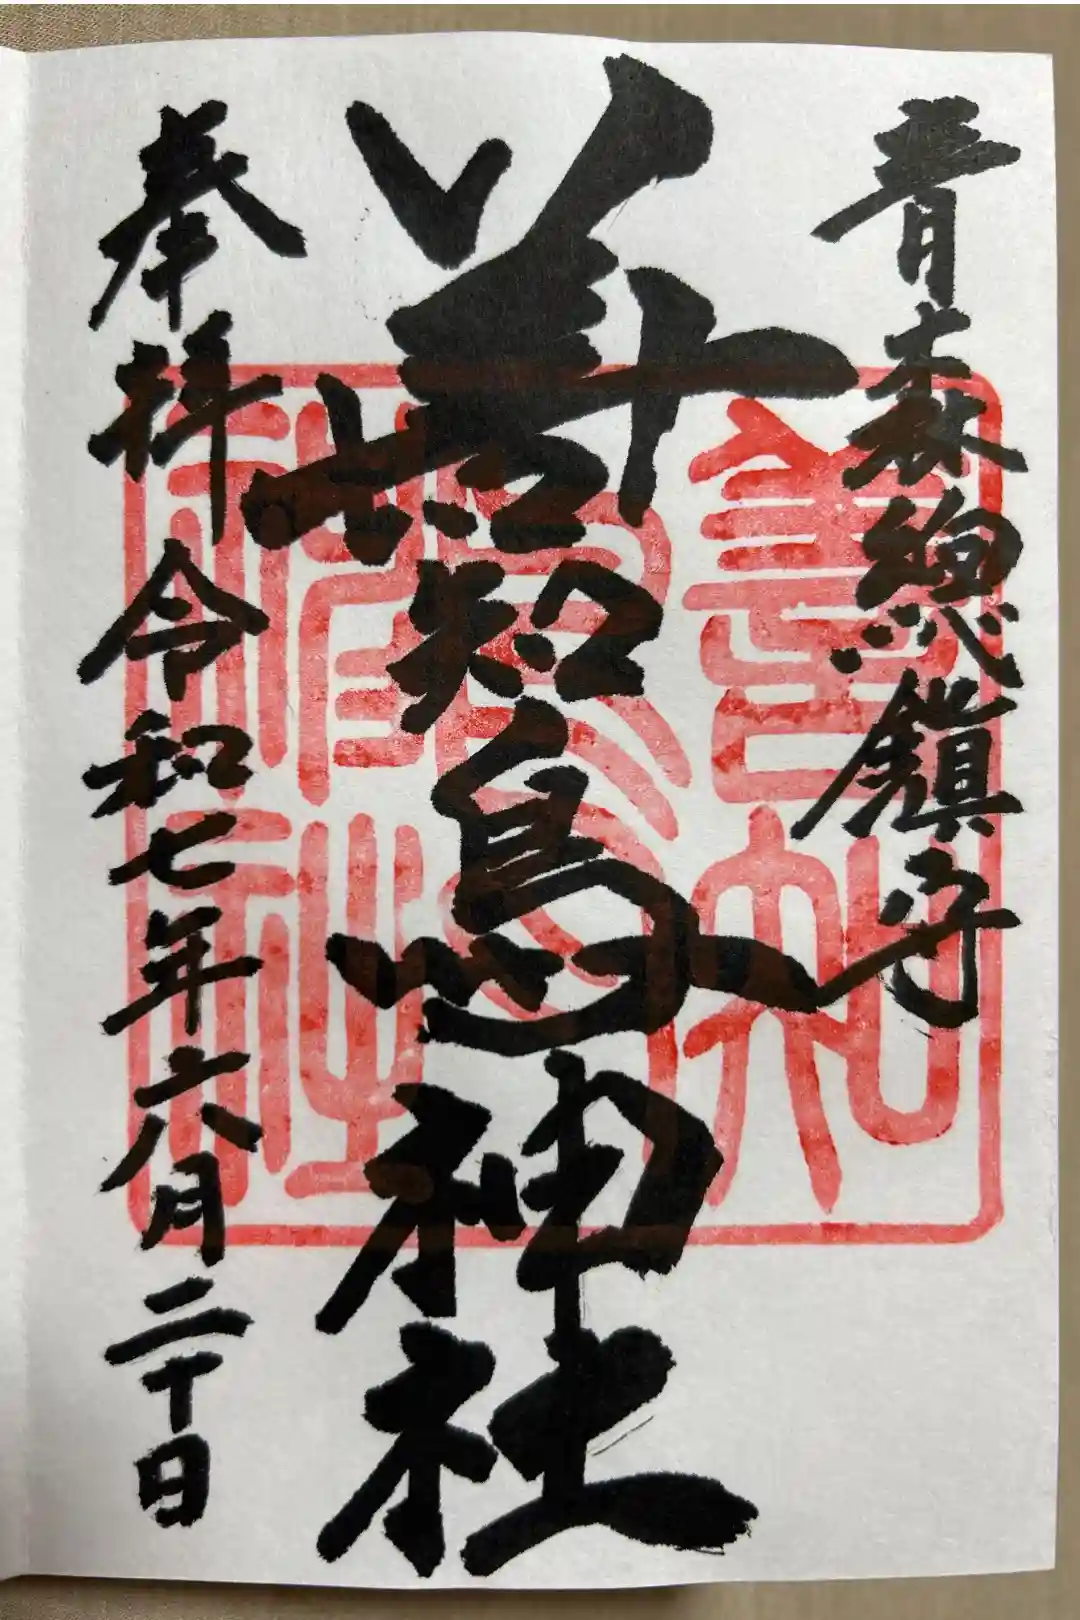 青森総鎮守
善知鳥神社
奉拝 令和七年六月二十日
善知
鳥神社